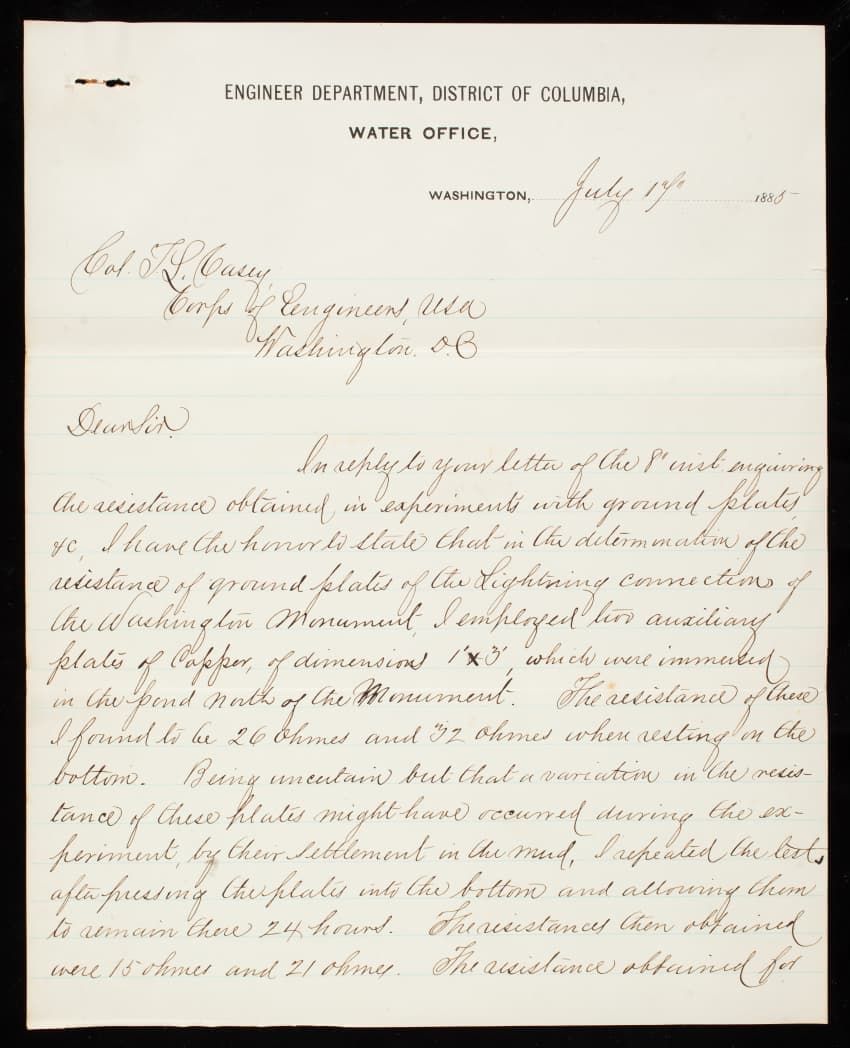 ENGINEER DEPARTMENT, DISTRICT OF COLUMBIA,
WATER OFFICE,
WASHINGTON, July 1885
Col. T. L. Casey,
Corps of Eengineers, USA
Washington. D.C
Dear Sir.
In reply to your letter of the 8" inst. enquiring
the resistance obtained in experiments with ground plates
&c, I have the honor to state that in the determination of the
resistance of ground plates of the Lightning connections of
the Washington Monument, I employed two auxiliary
plates of Copper, of dimensions 1'x3', which were immersed
in the pond north of the Monument. The resistance of these
I found to be 26 Ohmes and 32 Ohmes when resting on the
bottom. Being uncertain but that a variation in the resis-
tance of these plates might have occurred during the ex-
periment, by their settlement in the mud, I repeated the test,
after pressing the plates into the bottom and allowing them
to remain there 24 hours. The resistances then obtained
were 15 ohmes and 21 ohmes. The resistance obtained for